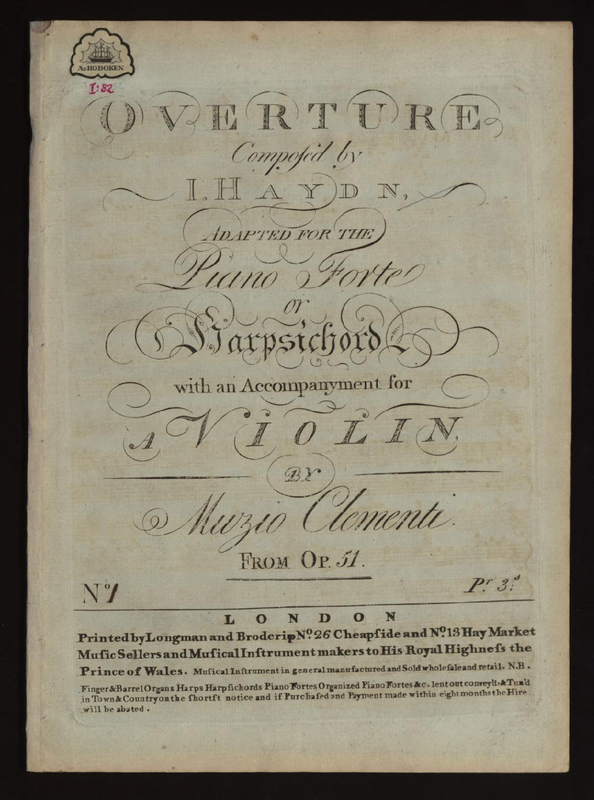 A.v.HOBOKEN
I:82
OVERTURE
Compoſed by
I. HAYDN,
ADAPTED FOR THE
Piano Forte
or
Harpsichord
with an Accompanyment for
A VIOLIN.
BY
Muzio Clementi.
FROM OP. 51.
No. 1
Pr. 3s.
LONDON
Printed by Longman and Broderip No. 26 Cheapſide and No. 13 Hay Market
Muſic Sellers and Muſical Inſtrument makers to His Royal Highneſs the
Prince of Wales. Muſical Inſtrument in general manufactured and Sold wholeſale and retail. N.B.
Finger & Barrel Organs Harps Harpſichords Piano Fortes Organized Piano Fortes &c. lent out convey'd, & Tun'd
in Town & Country on the ſhorteſt notice and if Purchaſed and Payment made within eight months the Hire
will be abated.